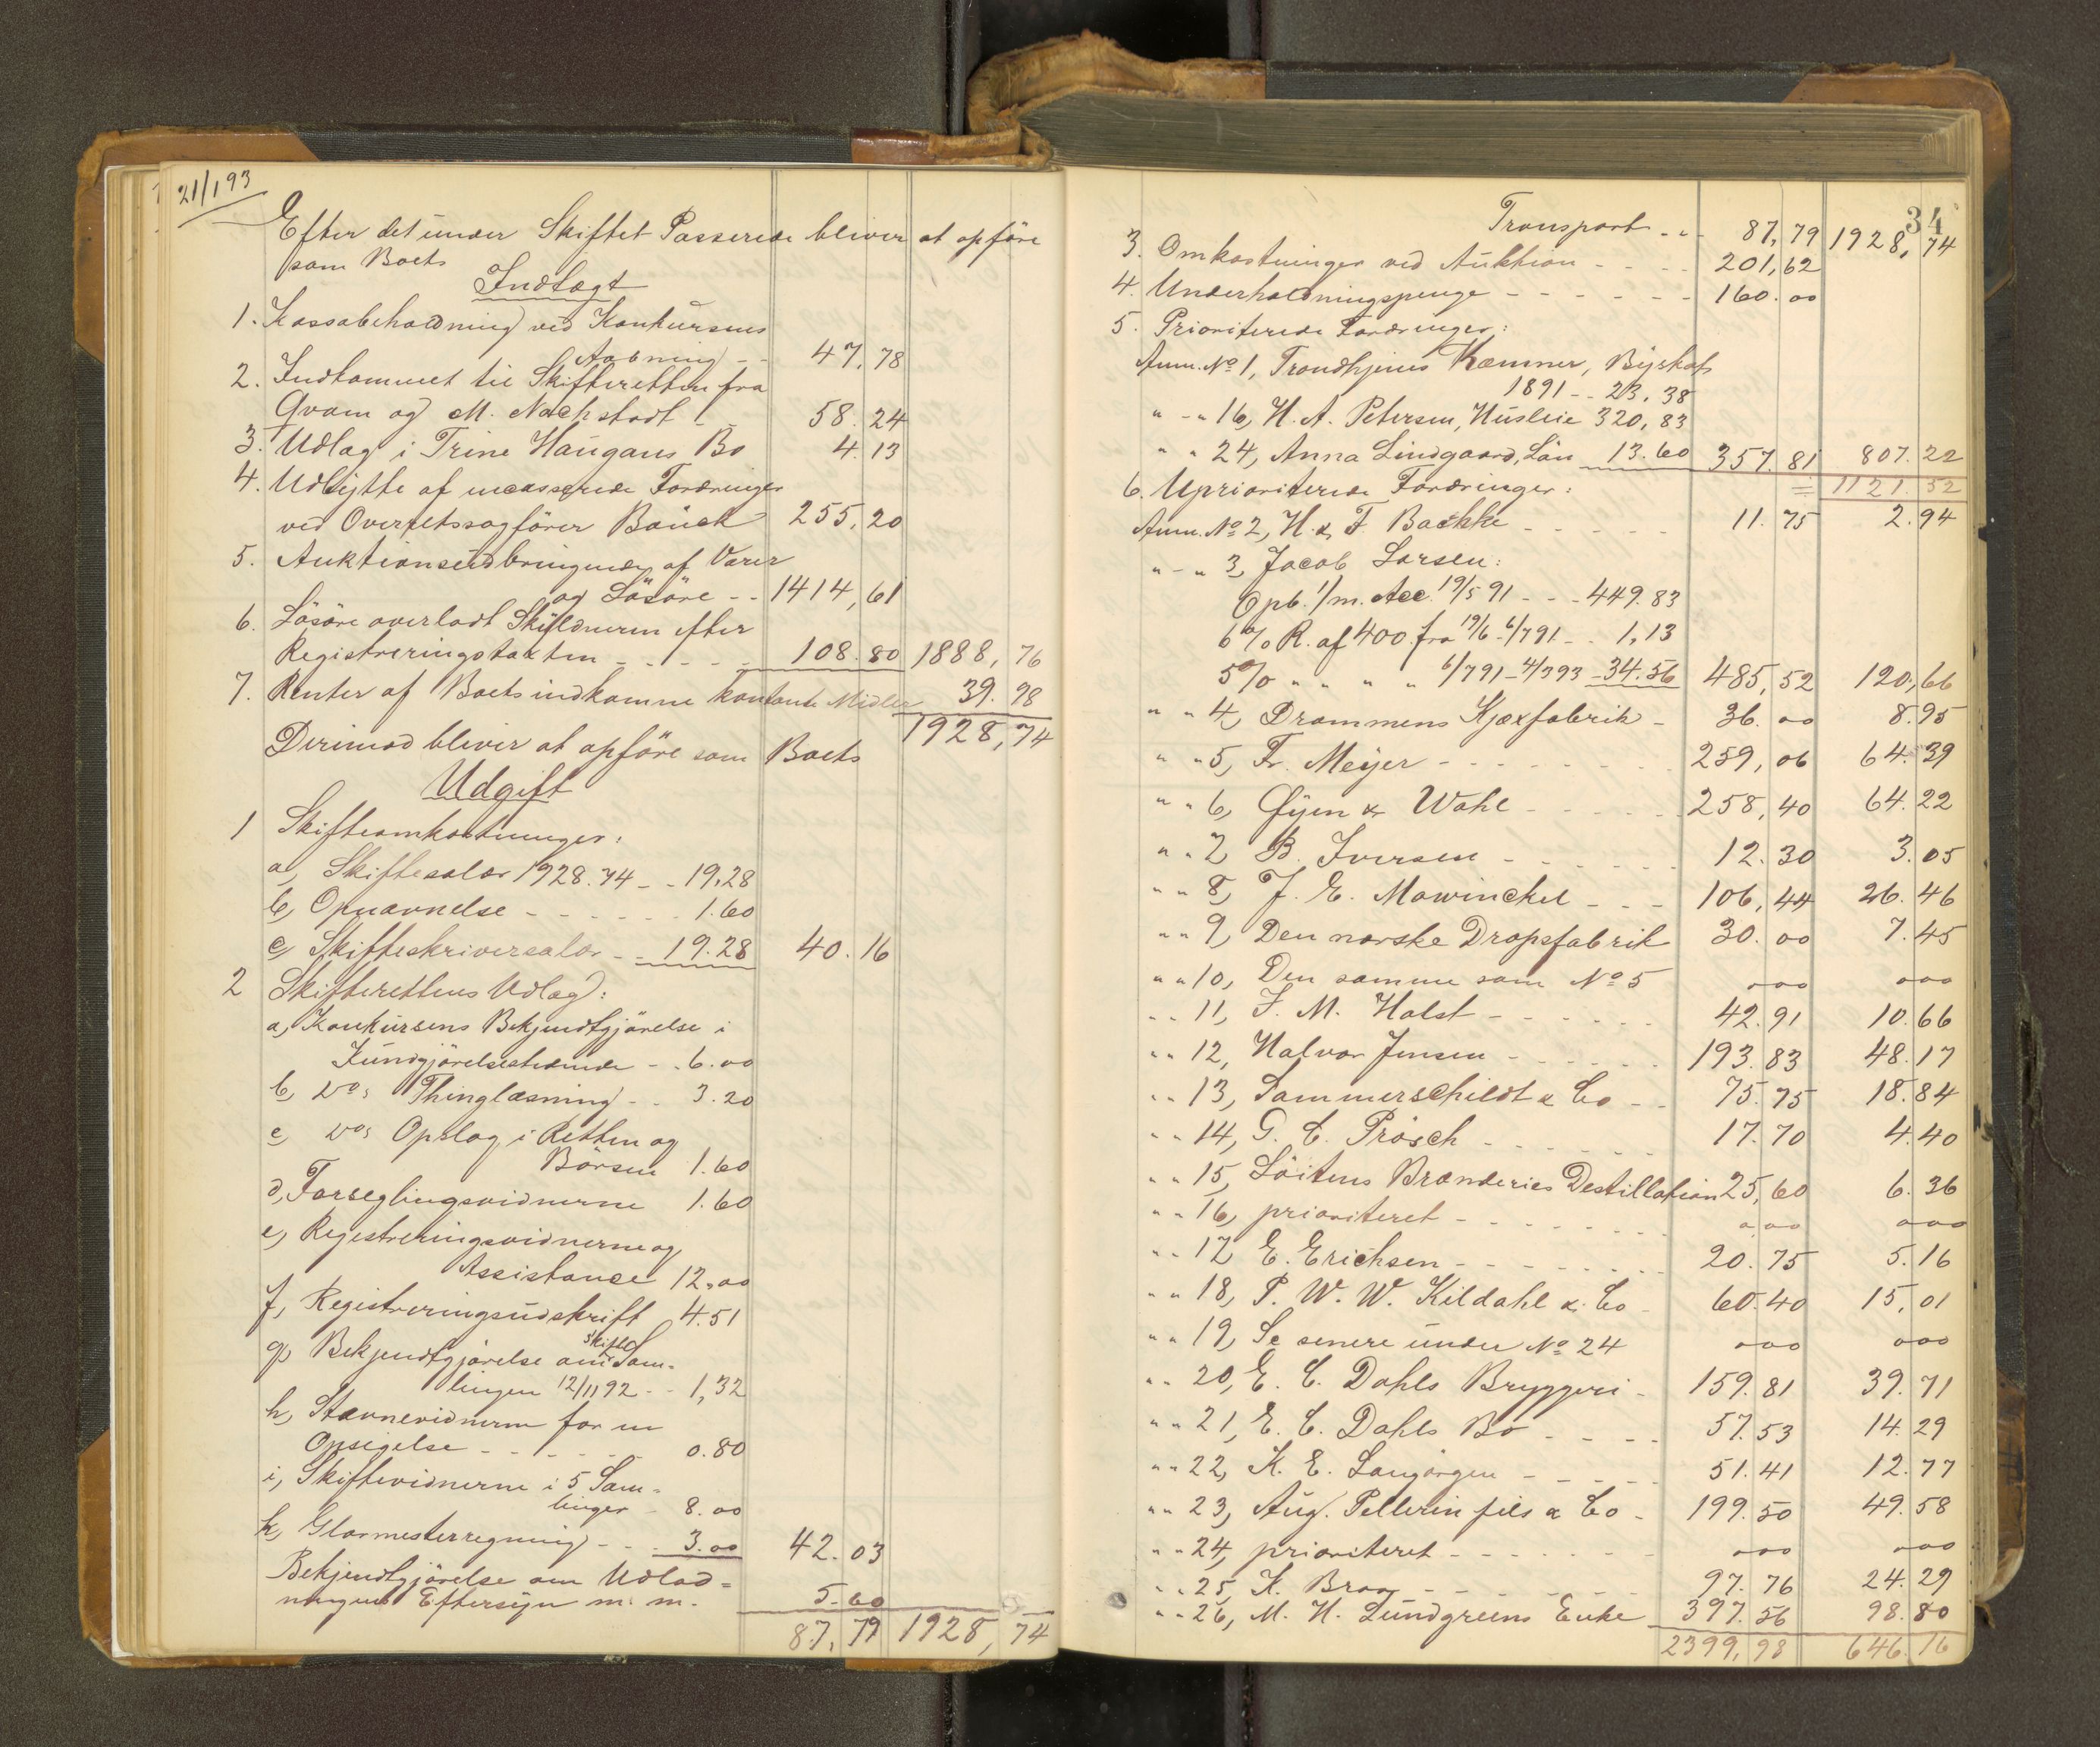 21/1 93
Efter det under Skiftet Passerede bliver at opføre
som Boets
Indtægt
1. Kassabeholdning ved Konkursens
Aabning - - 47.78
2. Indkommet til Skifteretten fra
Qvam og M. Nachstadt - 58.24
3. Udlæg i Trine Haugans Bo 4.13
4. Udbytte af incasserede Fordringer
ved Overretssagfører Bauck 255,20
5. Auktionsudbringende af Varer
og Løsøre - - 1414,61
6. Løsøre overladt Skyldneren efter
Registreringstaxten - - - - 108.80 1888,76
7. Renter af Boets indkomne kontante Midler 39.98
1928,74
Derimod bliver at opføre som Boets
Udgift
1 Skifteomkostninger:
a, Skiftesalær 1928.74 - - 19,28
b, Opnævnelse - - - - - - 1.60
c, Skifteskriversalær - - 19.28 40.16
2 Skifterettens Udlæg:
a, Konkursens Bekjendtgjørelse i
Kundgjørelsestidende - - 6.00
b, Do s Thinglæsning - - 3.20
c, Do s Opslag i Retten og
Børsen 1.60
d, Forseglingsvidnerne 1.60
e, Registreringsvidnerne og
Assistance 12,00
f, Registreringsudskrift 4.51
g, Bekjendtgjørelse om Skifte Sam-
lingen 12/11 92 - - 1,32
h, Stævnevidnerne for en
Opsigelse - - - - - - 0.80
i, Skiftevidnerne i 5 Sam-
linger - 8.00
k, Glarmesterregning - - - 3.00 42.03
Bekjendtgjørelse om Udlod-
ningens Eftersyn m. m. 5.60
87,79 1928,74
34
Transport - - 87,79 1928,74
3. Omkostninger ved Auktion - - - - 201,62
4. Underholdningspenge - - - - - - 160.00
5. Prioriterede Fordringer:
Anm. No 1, Trondhjems Kæmner, Byskat
1891 - - 23,38
" - " 16, H. A. Petersen, Husleie 320,83
" " 24, Anna Lindgaard, Løn 13.60 357.81 807.22
= 1121.52
6. Uprioriterede Fordringer:
Anm. No 2, H. & F. Bachke - - - - - 11.75 2.94
" - " 3, Jacob Larsen:
Opb. 1/m. Acc. 19/5 91 - - - 449.83
6 % R. af 400 fra 19/6 - 6/7 91 - - 1,13
5 % " " " " 6/7 91 - 4/3 93 - 34.56 485,52 120,66
" " 4, Drammens Kjæxfabrik - 36.00 8.95
" " 5, Fr. Meyer - - - - - - - - 259,06 64.39
" " 6, Øyen & Wahl - - - - - 258,40 64.22
" " 7, B. Iversen - - - - - - 12.30 3.05
" " 8, J. E. Mowinckel - - - 106,44 26.46
" " 9, Den norske Dropsfabrik 30.00 7.45
" " 10, Den samme som No 5 ooo ooo
" " 11, J. M. Holst - - - - - - 42.91 10.66
" " 12, Halvor Jensen - - - - - - 193.83 48.17
" " 13, Sommerschildt & Co - - 75.75 18.84
" " 14, G. C. Prøsch - - - - - - 17.70 4.40
" " 15, Løitens Brænderies Destillation 25,60 6.36
" " 16, prioriteret - - - - - - - ooo ooo
" " 17, E. Erichsen - - - - - - - 20.75 5.16
" " 18, P. W. W. Kildahl & Co - 60.40 15,01
" " 19, Se senere under No 24 ooo ooo
" " 20, E. C. Dahls Bryggeri - 159.81 39.71
" " 21, E. C. Dahls Bo - - - - 57.53 14.29
" " 22, K. E. Langørgen - - - - - 51.41 12.77
" " 23, Aug. Pellerin fils & Co - 199.50 49.58
" " 24, prioriteret - - - - - - - ooo ooo
" " 25, K. Braa - - - - - - - 97.76 24.29
" " 26, M. H. Lundgreens Enke 397.56 98.80
2399,98 646.16